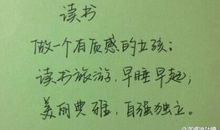 读书
做一个有质感的女孩:
读书旅游,早睡早起,
美丽典雅,自强独立。